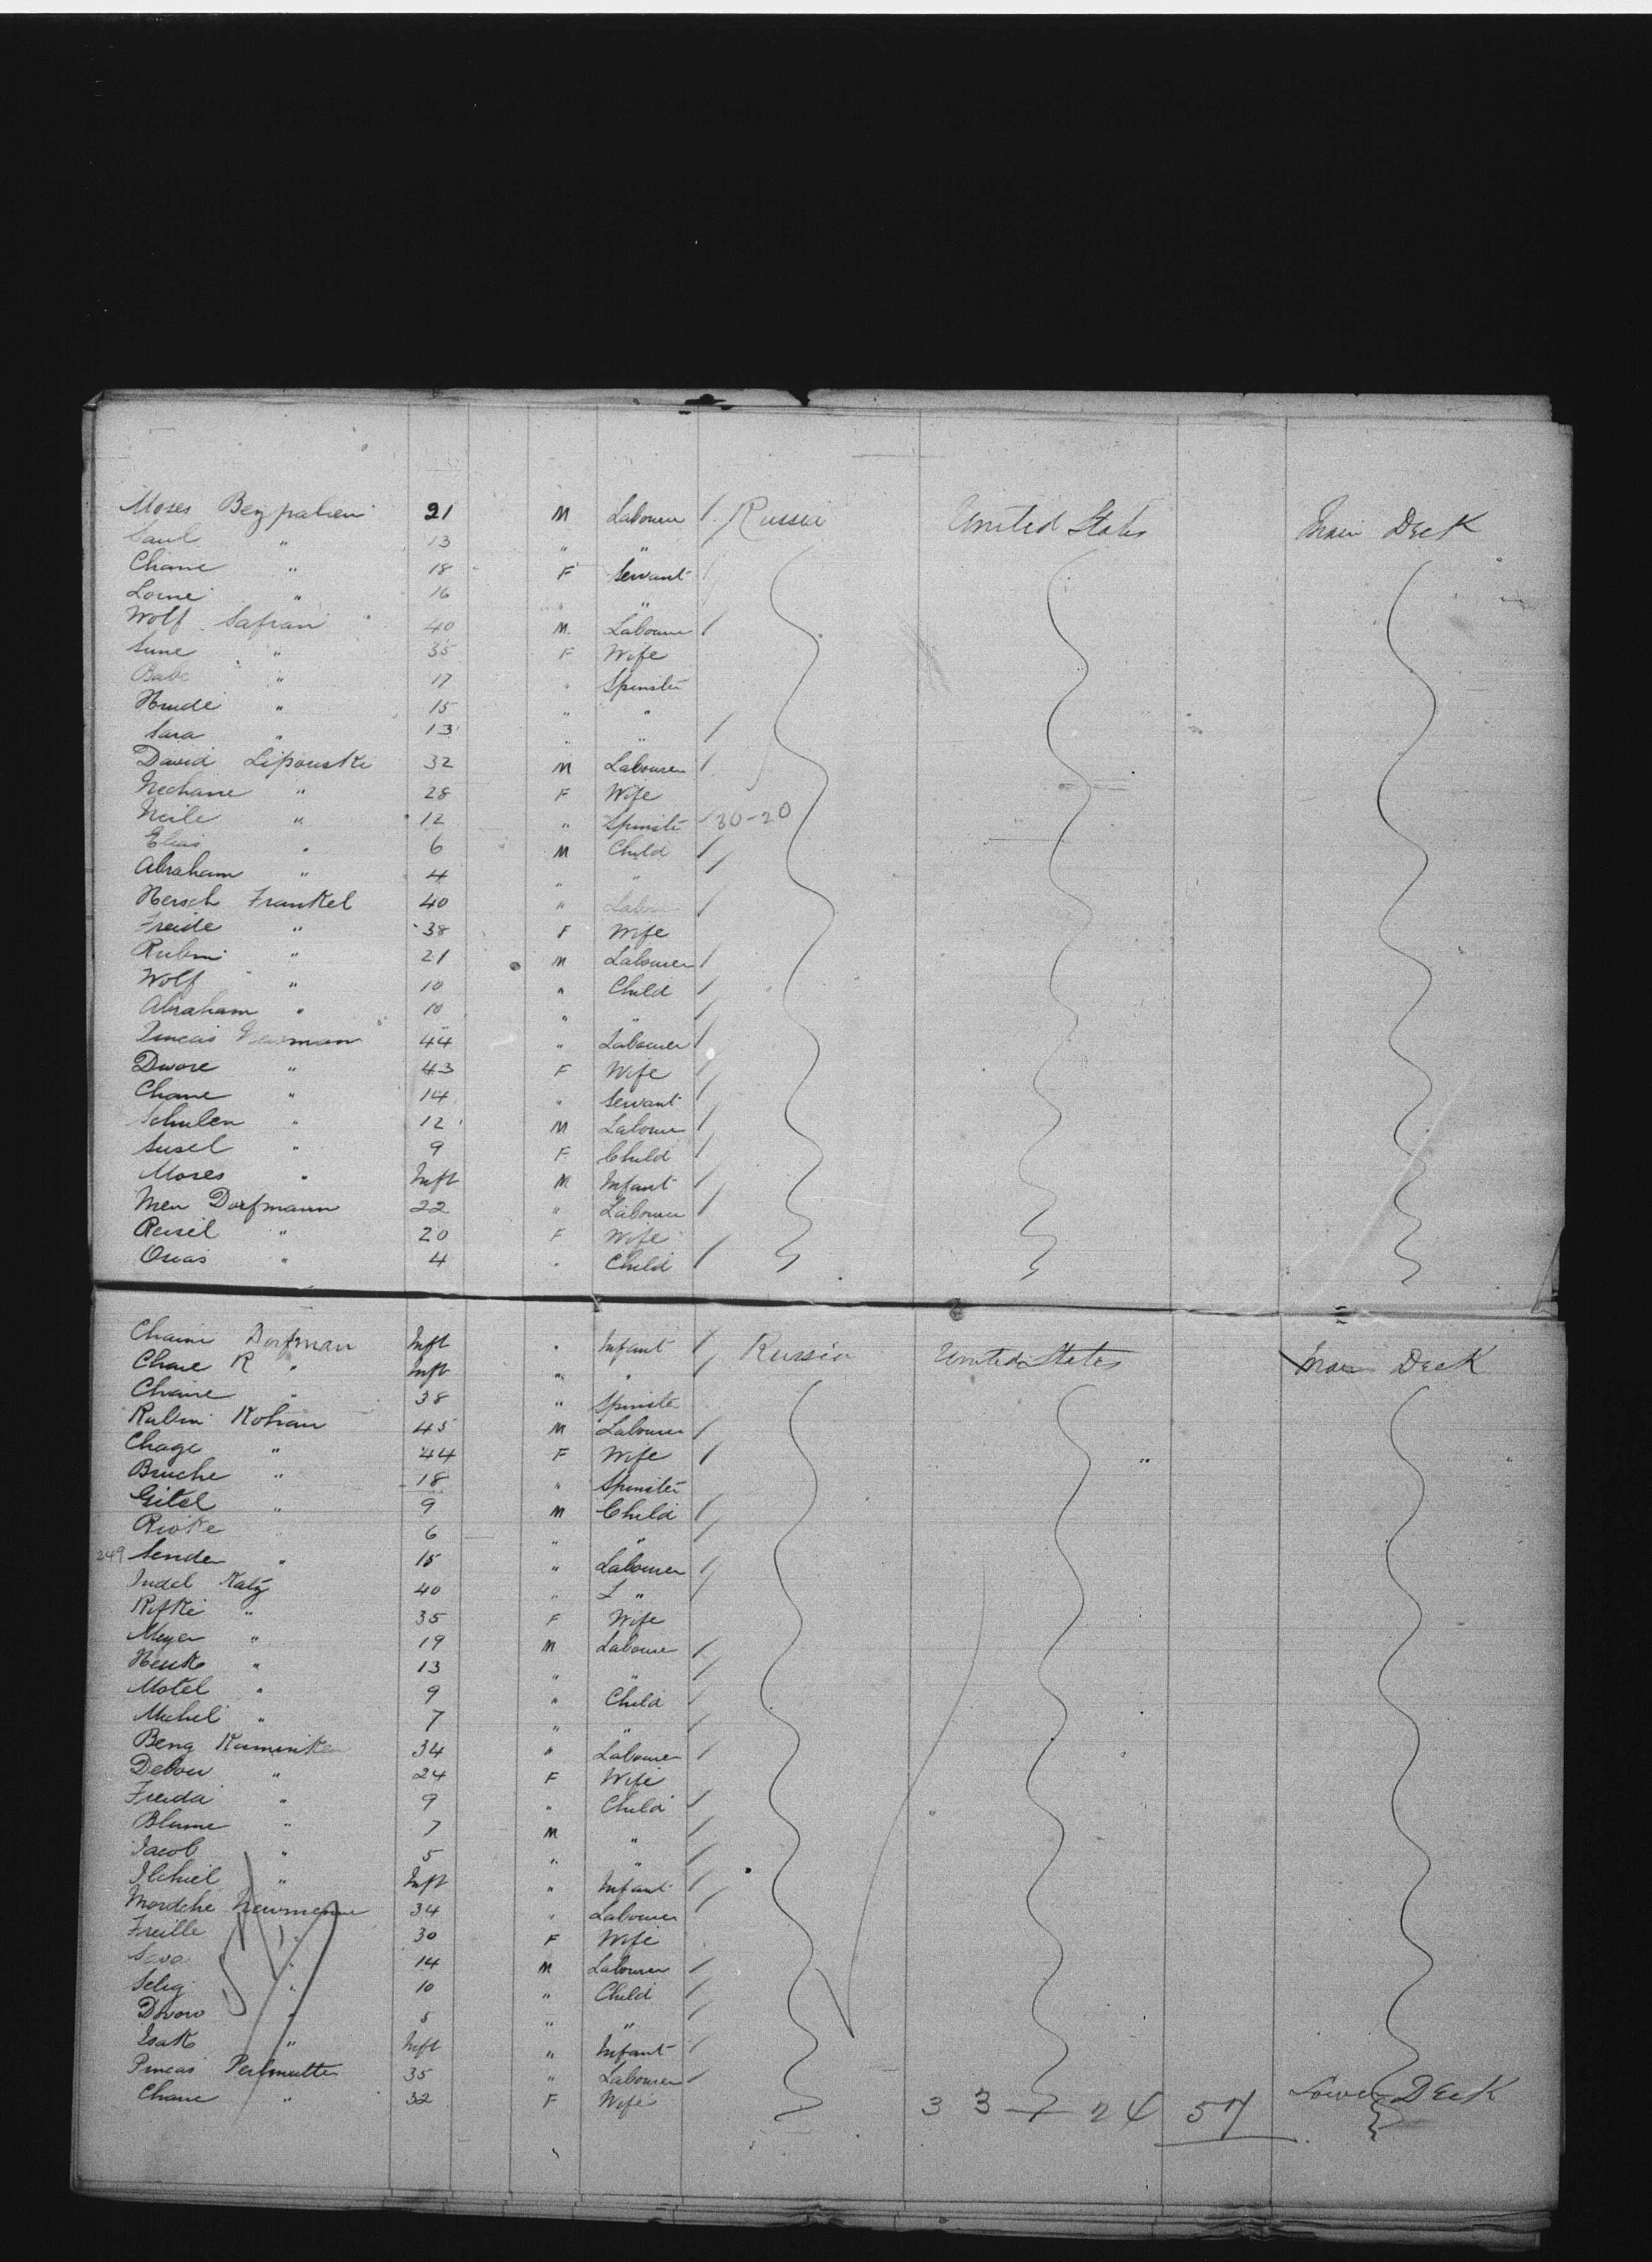 Moses Bezpalien 21 M Labourer Russia United States Main Deck
Saul " 13 " "
Chane " 18 F Servant
Lorne " 16 " "
Wolf Safran 40 M Labourer
Sune " 35 F Wife
Babe " 17 " Spinster
Hinde " 15 " "
Sara " 13 " "
David Lipouski 32 M Labourer
Nechane " 28 F Wife
Neile " 12 " Spinster 30-20
Elias " 6 M Child
Abraham " 4 " "
Hersch Frankel 40 " Labour
Freide " 38 F Wife
Rubin " 21 M Labourer
Wolf " 10 " Child
Abraham " 10 " "
Pincas Newman 44 " Labourer
Dwore " 43 F Wife
Chane " 14 " Servant
Schulen " 12 M Labourer
Susel " 9 F Child
Moses " Inft M Infant
Men Dorfmann 22 " Labourer
Reisel " 20 F Wife
Osias " 4 " Child
Chaim Dorfman Inft " Infant Russia United States Main Deck
Chaie R " Inft " "
Chaine " 38 " Spinster
Rubin Kohan 45 M Labourer
Chage " 44 F Wife
Bruche " 18 " Spinster
Gitel " 9 M Child
Rivke 6 " "
249 Sender " 15 " Labourer
Judel Katz 40 " L "
Rifke " 35 F Wife
Meyer " 19 M Labourer
" 13 " "
Motel " 9 " Child
Michel " 7 " "
Beng Kaminke 34 " Labourer
Debou " 24 F Wife
Freida " 9 " Child
Blume " 7 M "
Jacob " 5 " "
" Inft " Infant
Mordche Neumenn 34 " Labourer
Freille " 30 F Wife
" 14 M Labourer
Selig " 10 " Child
" 5 " "
Isak " Inft " Infant
Pincas Perlmutter 35 " Labourer
Chane " 32 F Wife 33 24 57 Lower Deck